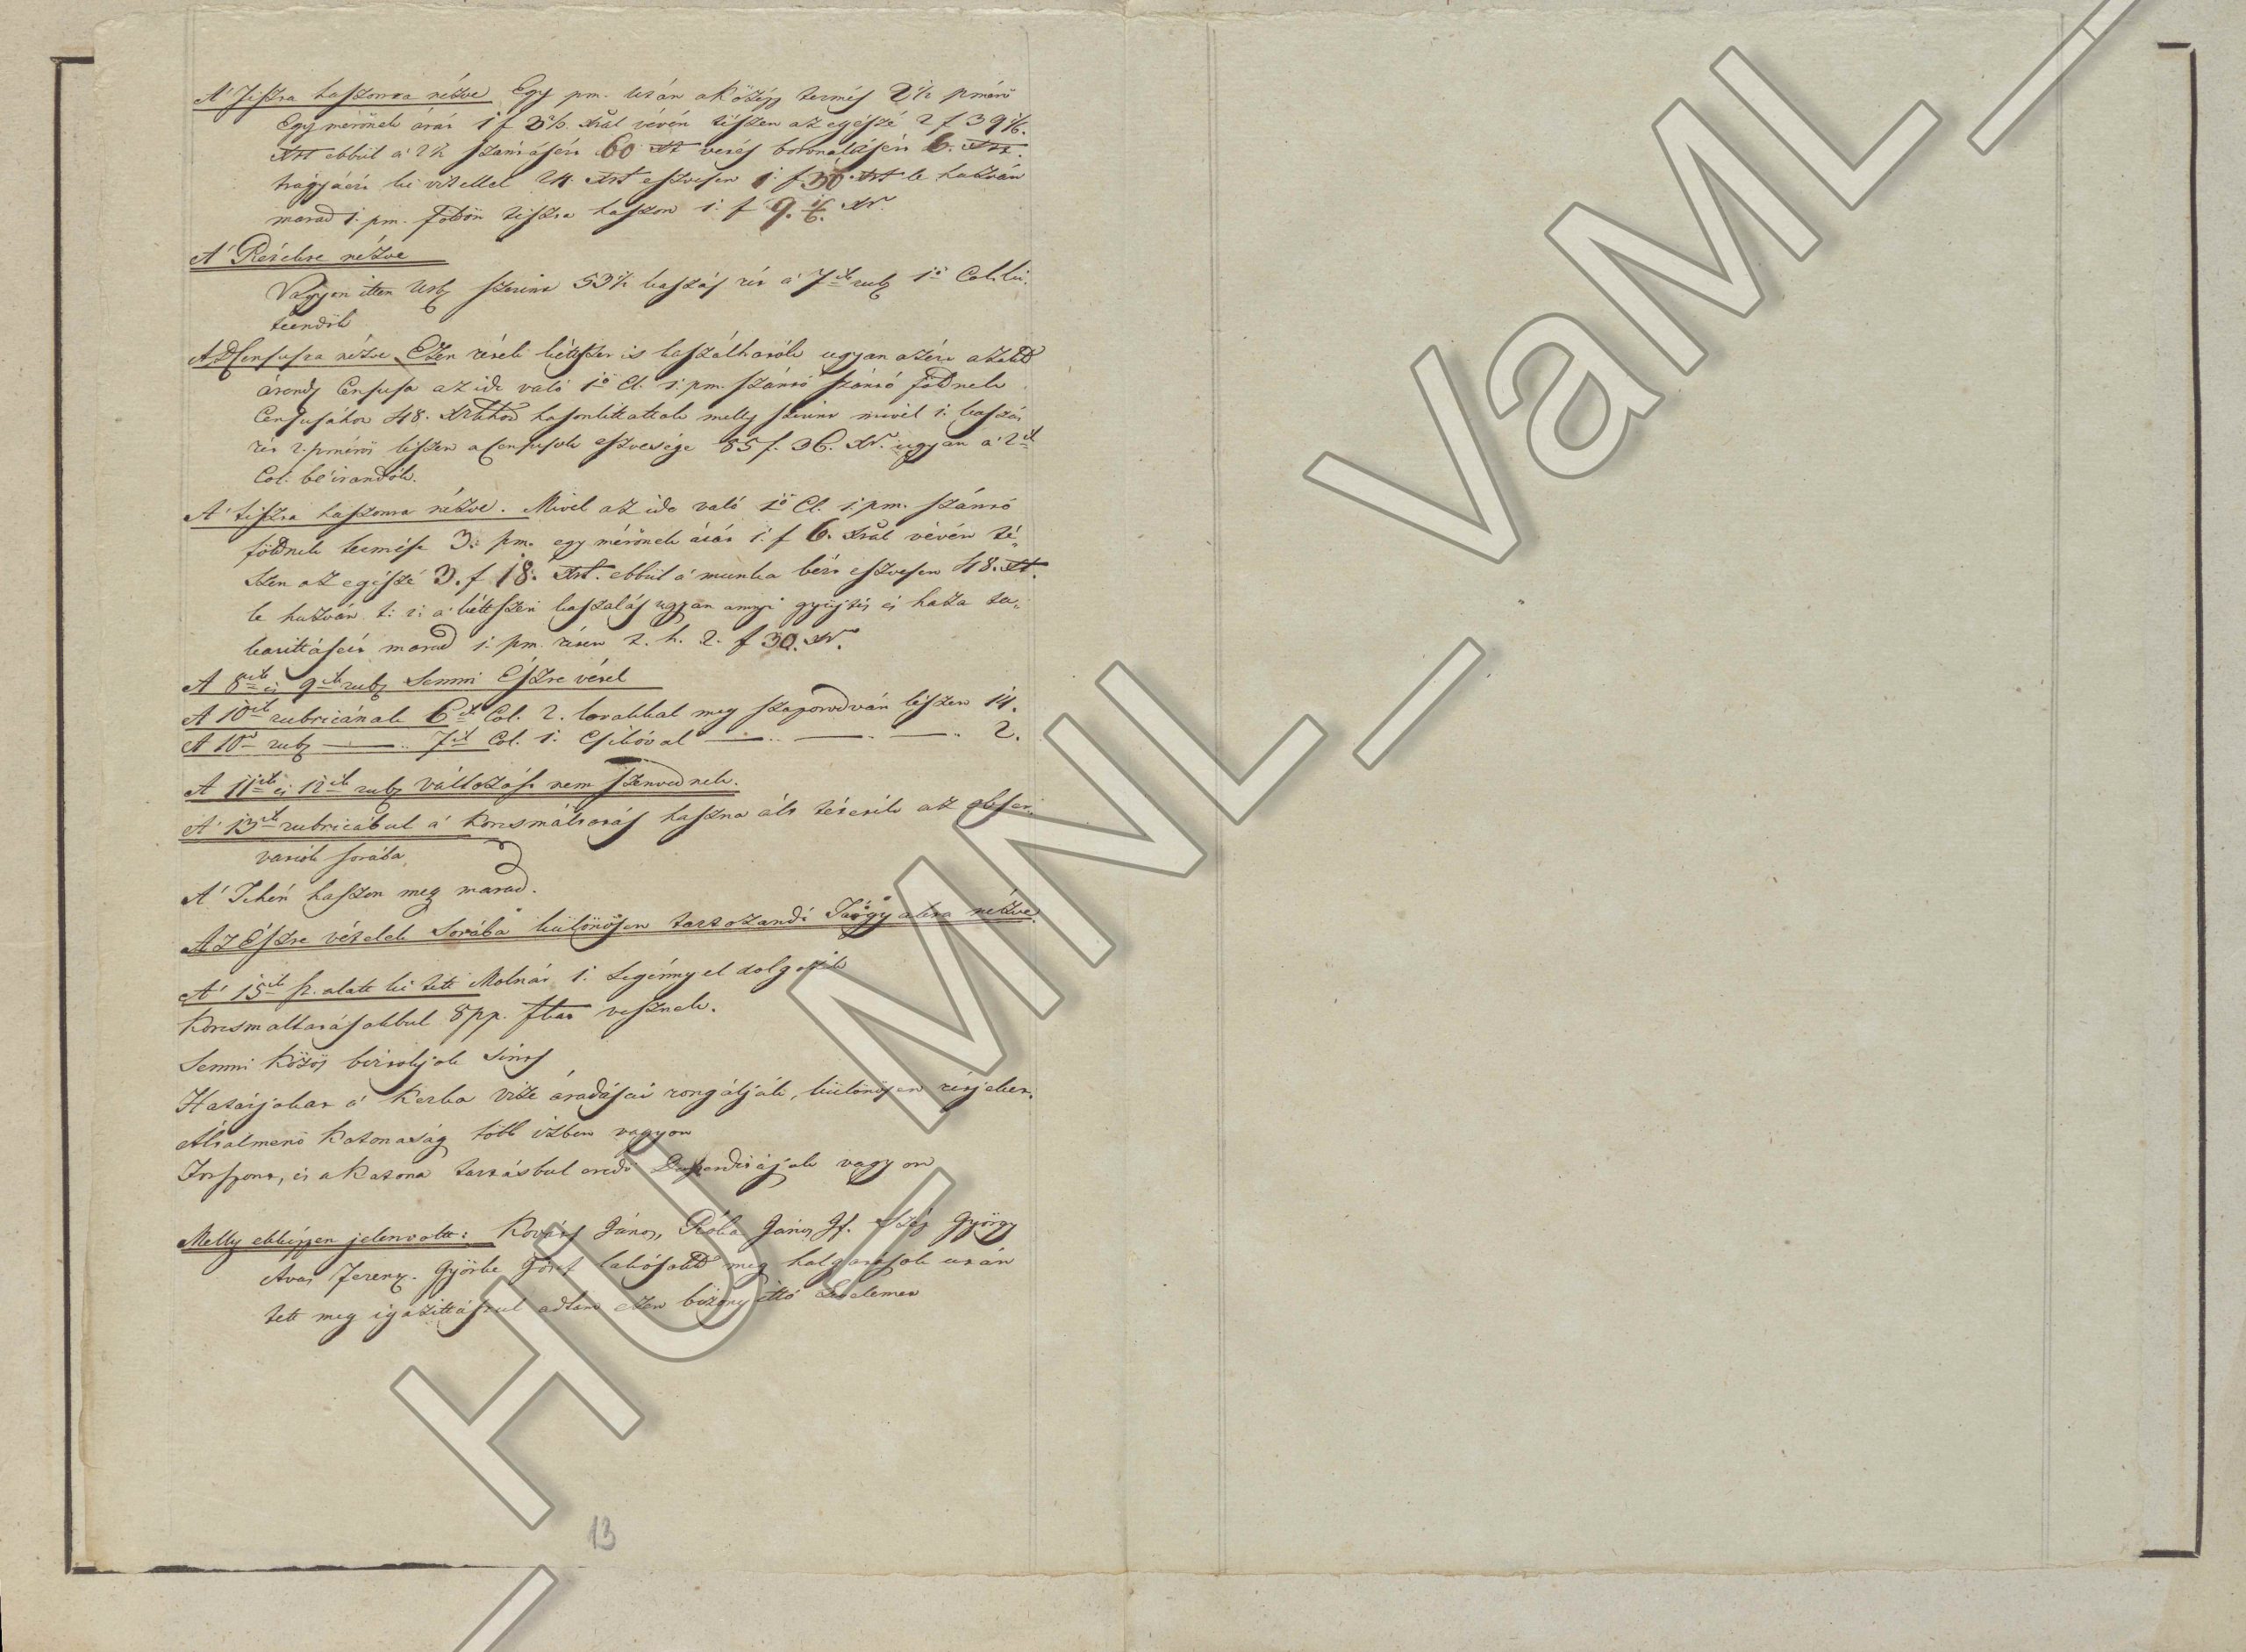 A' Tiszta haszonra nézve Egy pm. után a Közép termés 2½ pmérő
Egy mérőnek árát 1 f 3⅔ Xrál vévén tészen az egészé 2 f 39 1/6.
Xrt ebbül á 2k szántásért 60 Xr vetés boronálásért 6. Xrt.
trágyáért ki vitellel 24 Xrt eszvesen 1. f 30. Xrt le húzván
marad 1. pm. földön tiszta haszon 1. f 9. 1/6. Xr.
A' Rétekre nézve
Vagyon itten Urb. szerint 53½ kaszás rét á 7ik rub. 1ő Col. ki
teendők
A Censusra nézve Ezen rétek kétszer is kaszálhatók ugyan azért
árenda Censusa az ide való 1ő Cl. 1. pm. szántó szántó földnek
Censusához 48. Xrkhoz hasonlittattak melly szerint mivel 1. kaszás
rét 2. pmérős lészen a Censusok eszvesége 85 f. 36. Xr. ugyan á 2ik
Col. béirandók.
A' tiszta haszonra nézve. Mivel az ide való 1ő Cl. 1. pm. szántó
földnek termése 3. pm. egy mérőnek árát 1. f 6. Xrál vévén té„
szen az egészé 3. f 18. Xrt. ebbül á munka bért eszvesen 48. Xr.
le húzván t: i: á kétszeri kaszálás ugyan annyi gyüjtés és haza ta„
karittásért marad 1. pm. réten t. h. 2. f 30. Xr.
A 8ik és 9ik rub. Semmi Észre vétel
A 10ik rubricának 6ik Col. 2. lovakkal meg szaporodván lészen 14.
A 10ik rub. — 7ik Col. 1. Csikóval — — — 2.
A 11ik és 12ik rub. változást nem szenvednek.
A' 13ik rubricábul á Korcsmáltatás haszna ált tétetik az obser„
vatiók sorába
A' Tehén haszon meg marad.
Az Észre vételek Sorába különössen tartozandó Tárgyakra nézve.
A' 15ik sz. alatt ki tett Molnár 1. Legénnyel dolgozik
Korcsmaltatásokbul 8 pp. ftot vesznek.
Semmi Közös birtokjok Sints
Határjokat á Kerka vize áradásai rongálják, különössen rétjeket.
Által menő Katonaság több izben vagyon
Forspont, és a Katona tartásbul eredő Deperditájok vagyon
Melly ekképpen jelenvoltt: Kováts János, Róka János Jf. György
Avas Ferencz. Györke Jósef lakosok meg halgatások után
tett meg igazittásrul adtam ezen bizonyittó Levelemet
13
HU_MNL_VaML_